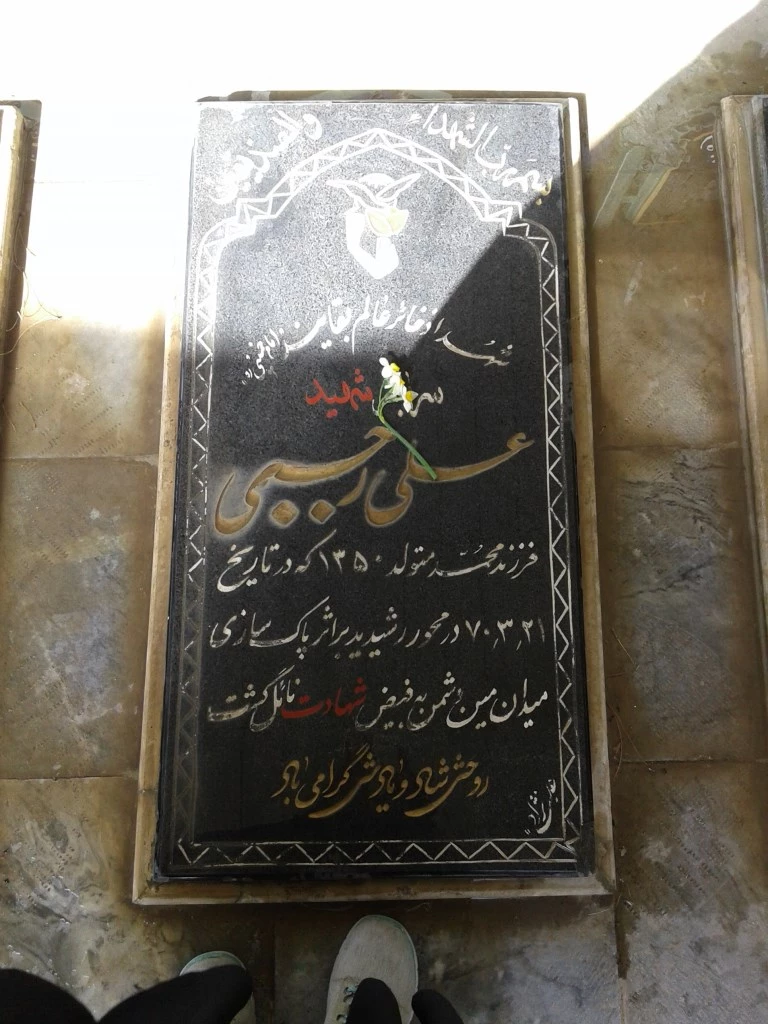 بسم رب الشهداء والصدیقین
شهدا ذخائر عالم بقایند امام خمینی (ره)
سرباز شهید
علی رجبی
فرزند محمد متولد ۱۳۵۰ که در تاریخ
۷۰٫۳٫۲۱ در محور رشیدیه براثر پاک سازی
میدان مین دشمن به فیض شهادت نائل گشت
روحش شاد و یادش گرامی باد